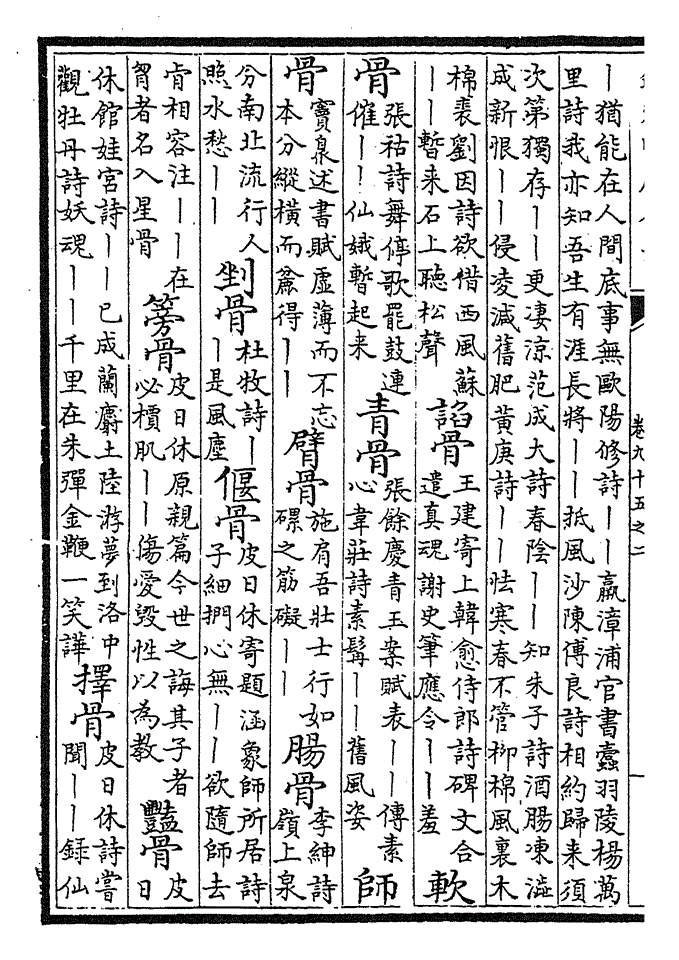 卷九十五之二
｜猶能在人間底事無歐陽修詩｜｜羸漳浦官書蠹羽陵楊萬
里詩我亦知吾生有涯長將｜｜抵風沙陳傅良詩相約歸来須
次第獨存｜｜更凄涼范成大詩春陰｜｜知朱子詩酒腸凍澁
成新恨｜｜侵凌減舊肥黄庚詩｜｜怯寒春不管柳棉風裏木
棉裘劉因詩欲借西風蘇
｜｜暫来石上聽松聲
諂骨
王建寄上韓愈侍郎詩碑文合
遣真魂謝史筆應令｜｜羞
軟
骨
張祜詩舞停歌罷鼓連
催｜｜仙娥暫起来
青骨
張餘慶青玉案賦表｜｜傳素
心韋莊詩素髯｜｜舊風姿
師
骨
竇臮述書賦虚薄而不忘
本分縱橫而得｜｜
臂骨
施肩吾壯士行如
磥之筋礙｜｜
腸骨
李紳詩
嶺上泉
分南北流行人
照水愁｜｜
剉骨
杜牧詩｜
｜是風塵
偃骨
皮日休寄題涵象師所居詩
子細捫心無｜｜欲隨師去
肯相容注｜｜在
胷者名入星骨
篣骨
皮日休原親篇今世之誨其子者
必檟肌｜｜傷愛毁性以為教
豔骨
皮
日
休館娃宫詩｜｜已成蘭麝土陸游夢到洛中
觀牡丹詩妖魂｜｜千里在朱彈金鞭一笑譁
擇骨
皮日休詩嘗
聞｜｜録仙